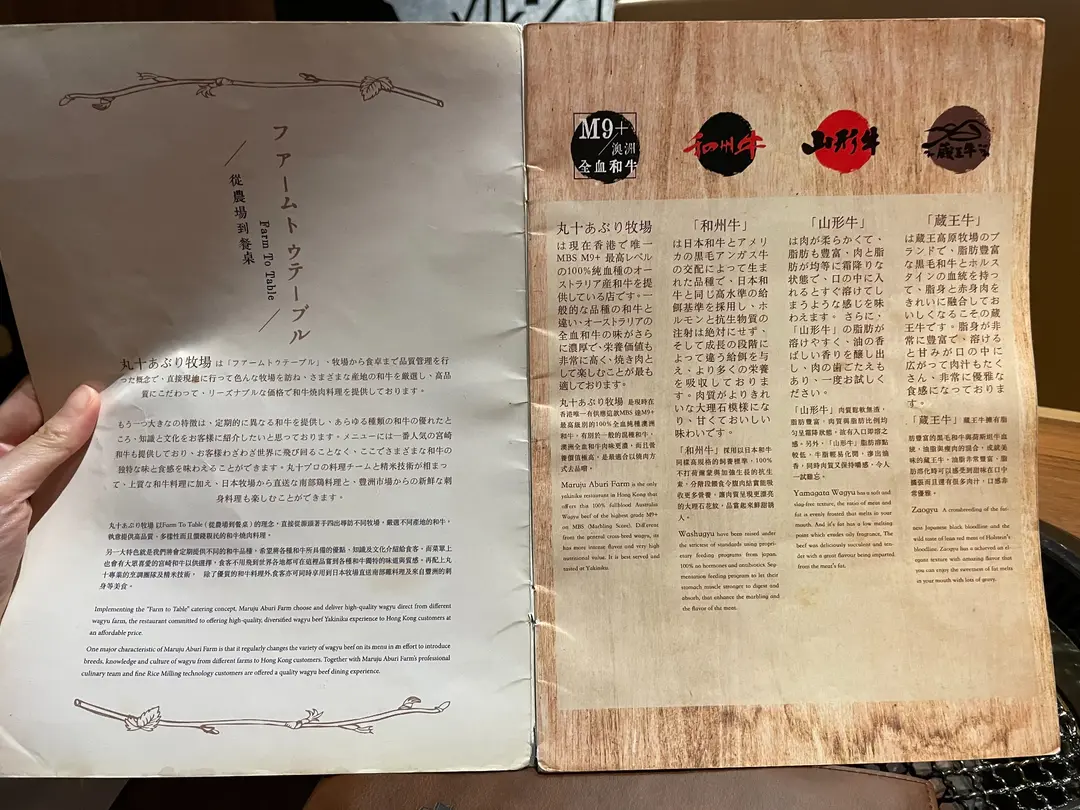 ファームトゥテーブル
從農場到餐桌
Farm To Table
丸十あぶり牧場 は「ファームトゥテーブル」、牧場から食卓まで品質管理を行
った概念で、直接現地に行って色んな牧場を訪ね、さまざまな産地の和牛を厳選し、高品
質にこだわって、リーズナブルな価格で和牛焼肉料理を提供しております。
もう一つ大きなの特徴は、定期的に異なる和牛を提供し、あらゆる種類の和牛の優れたと
ころ、知識と文化をお客様に紹介したいと思っております。メニューには一番人気の宮崎
和牛も提供しており、お客様わざわざ世界に飛び回ることなく、ここでさまざまな和牛の
独特な味と食感を味わえることができます。丸十プロの料理チームと精米技術が相まっ
て、上質な和牛料理に加え、日本牧場から直送な南部鶏料理と、豊洲市場からの新鮮な刺
身料理も楽しむことができます。
丸十あぶり牧場 以Farm To Table (從農場到餐桌) 的理念,直接從源頭著手四出尋訪不同牧場,嚴選不同產地的和牛,
執意提供高品質、多樣性而且價錢親民的和牛燒肉料理。
另一大特色就是我們將會定期提供不同的和牛品種,希望將各種和牛所具備的優點、知識及文化介紹給食客。而菜單上
也會有大眾喜愛的宮崎和牛以供選擇,食客不用飛到世界各地都可在這裡品嘗到各種和牛獨特的味道與質感。再配上丸
十專業的烹調團隊及精米技術, 除了優質的和牛料理外食客亦可同時享用到日本牧場直送南部雞料理及來自豐洲的刺
身等美食。
Implementing the "Farm to Table" catering concept, Maruju Aburi Farm choose and deliver high-quality wagyu direct from different
wagyu farm, the restaurant committed to offering high-quality, diversified wagyu beef Yakiniku experience to Hong Kong customers at
an affordable price.
One major characteristic of Maruju Aburi Farm is that it regularly changes the variety of wagyu beef on its menu in an effort to introduce
breeds, knowledge and culture of wagyu from different farms to Hong Kong customers. Together with Maruju Aburi Farm's professional
culinary team and fine Rice Milling technology customers are offered a quality wagyu beef dining experience.
M9+
澳洲
全血和牛
丸十あぶり牧場
は現在香港で唯一
MBS M9+ 最高レベル
の100%純血種のオー
ストラリア産和牛を提
供している店です。一
般的な品種の和牛と
違い、オーストラリアの
全血和牛の味がさら
に濃厚で、栄養価値も
非常に高く、焼き肉と
して楽しむことが最も
適しております。
丸十あぶり牧場 是現時在
香港唯一有供應這款MBS 達M9+
最高級別的100%全血純種澳洲
和牛,有別於一般的混種和牛,
澳洲全血和牛肉味更濃,而且營
養價值極高,是最適合以燒肉方
式去品嚐。
Maruju Aburi Farm is the only
yakiniku restaurant in Hong Kong that
offers this 100% fullblood Australian
Wagyu beef of the highest grade M9+
on MBS (Marbling Score). Different
from the general cross-bred wagyu, it
has more intense flavor and very high
nutritional value. It is best served and
tasted at Yakiniku.
和州牛
「和州牛」
は日本和牛とアメリ
カの黒毛アンガス牛
の交配によって生ま
れた品種で、日本和
牛と同じ高水準の給
餌基準を採用し、ホ
ルモンと抗生物質の
注射は絶対にせず、
そして成長の段階に
よって違う給餌を与
え、より多くの栄養
を吸収しておりま
す。肉質がよりきれ
いな大理石模様にな
り、甘くておいしい
味わいです。
「和州牛」 採用以日本和牛
同樣高規格的飼養標準,100%
不打荷爾蒙與加強生長的抗生
素,分階段餵食令腹肉結實能吸
收更多營養,讓肉質呈現更漂亮
的大理石花紋,品嘗起來鮮甜誘
人。
Washugyu have been raised under
the strictest of standards using propri-
etary feeding programs from japan.
100% no hormones and antibiotics. Seg-
mentation feeding program as let their
stomach muscle stronger to digest and
absorb, that enhance the marbling and
the flavor of the meat.
山形牛
「山形牛」
は肉が柔らかくて、
脂肪も豊富、肉と脂
肪が均等に霜降りな
状態で、口の中に入
れるとすぐ溶けてし
まうような感じを味
わえます。さらに、
「山形牛」の脂肪が
溶けやすく、油の香
ばしい香りを醸し出
し、肉の歯ごたえも
あり、一度お試しく
ださい。
「山形牛」 肉質鬆軟無渣,
脂肪豐富,肉質與脂肪比例均
勻呈霜降狀態,放有入口即溶之
感。另外,「山形牛」脂肪溶點
較低,牛脂輕易化開,滲出油
香,同時肉質又保持嚼感,令人
一試難忘。
Yamagata Wagyu has a soft and
slag-free texture, the ratio of meat and
fat is evenly frosted that melts in your
mouth. And it's fat has a low melting
point which exudes oily fragrance. The
beef was deliciously succulent and ten-
der with a great flavour being imparted
from the meat's fat.
蔵王牛
「蔵王牛」
は蔵王高原牧場のブ
ランドで、脂肪豊富
な黒毛和牛とホルス
タインの血統を持っ
て、脂身と赤身肉を
きれいに融合してお
いしくなるこその蔵
王牛です。脂身が非
常に豊富で、溶ける
と甘みが口の中に
広がって肉汁もたく
さん、非常に優雅な
食感になっておりま
す。
「蔵王牛」 蔵王牛擁有脂
肪豐富的黑毛和牛與荷斯坦牛血
統,油脂與瘦肉的混合,成就美
味的蔵王牛。油脂非常豐富,脂
肪溶化時可以感受到甜味在口中
擴張而且還有很多肉汁,口感非
常優雅。
Zaogyu A crossbreeding of the
ness Japanese black bloodline and the
wild taste of lean red meat of Holstein's
bloodline. Zaogyu has a achieved an el-
egant texture with amazing flavor that
you can enjoy the sweetness of fat melts
in your mouth with lots of gravy.